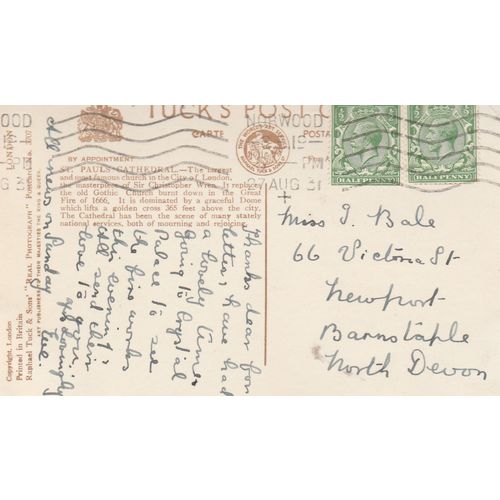 TUCK'S POST C
CARTE POSTA
BY APPOINTMENT
ST. PAUL'S CATHEDRAL.—The largest
and most famous church in the City of London,
the masterpiece of Sir Christopher Wren. It replaces
the old Gothic Church burnt down in the Great
Fire of 1666. It is dominated by a graceful Dome
which lifts a golden cross 365 feet above the city.
The Cathedral has been the scene of many stately
national services, both of mourning and rejoicing.
NORWOOD
PM
27 AUG 31
HALFPENNY
HALFPENNY
Miss I. Bale
66 Victoria St
Newport
Barnstaple
North Devon
Thanks dear for
letter, have had
a lovely time
going to Crystal
Palace to see
the fire works
this evening
All send their
love to you.
Lovingly
Eve
All news on Sunday
Copyright, London
Printed in Britain
Raphael Tuck & Sons' "REAL PHOTOGRAPH" POSTCARD
ART PUBLISHERS TO THEIR MAJESTIES THE KING & QUEEN.
LONDON